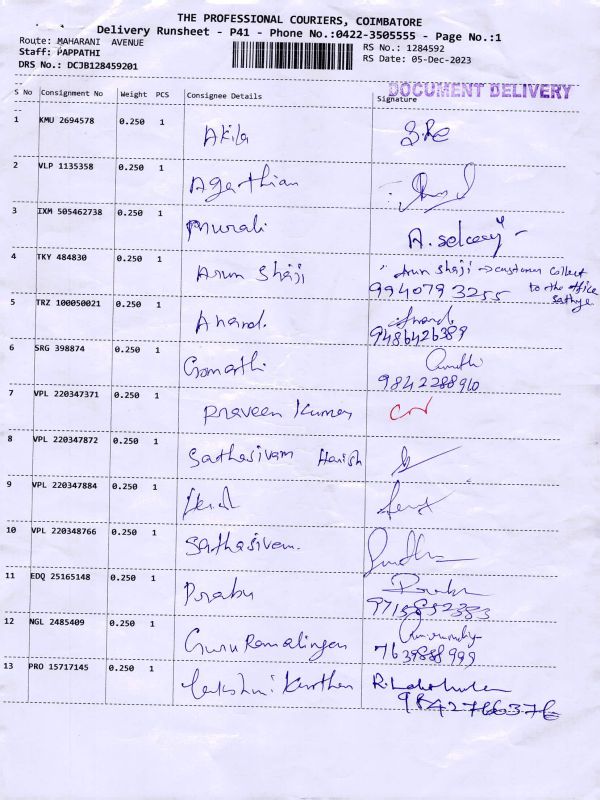 THE PROFESSIONAL COURIERS, COIMBATORE
Delivery Runsheet - P41 - Phone No.:0422-3505555 - Page No.:1
Route: MAHARANI AVENUE
RS No.: 1284592
Staff: PAPPATHI
RS Date: 05-Dec-2023
DRS No.: DCJB128459201
DOCUMENT DELIVERY
S No Consignment No Weight PCS Consignee Details Signature
1 KMU 2694578 0.250 1 Akila
2 VLP 1135358 0.250 1 Agasthian
3 IXM 505462738 0.250 1 Murali
4 TKY 484830 0.250 1 Arun Shaji Arun Shaji → customer collect
to the office
9940793255
5 TRZ 100050021 0.250 1 Anand. Anand
9486426389
6 SRG 398874 0.250 1 Gomathi
9842288910
7 VPL 220347371 0.250 1 Praveen Kumar
8 VPL 220347872 0.250 1 Sathasivam Harish
9 VPL 220347884 0.250 1
10 VPL 220348766 0.250 1 Sathasivam.
11 EDQ 25165148 0.250 1 Prabu
12 NGL 2485409 0.250 1 Guru Ramalingam
7639888999
13 PRO 15717145 0.250 1 Lakshmi Kanthan
9842766376